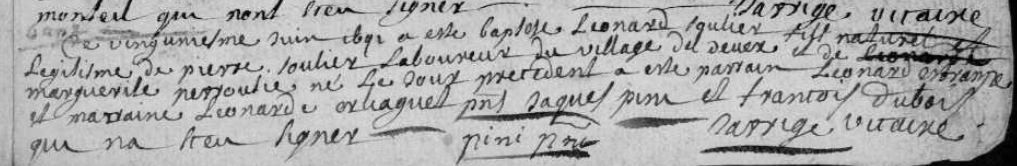 monteil qui nont sceu signer Sarrige vicaire
Le vingtuniesme Juin 1691 a este baptose Leonard soulier fils naturel
Legitisme de pierre soulier Laboureur du village del dever et de
marguerite perroutie né Le Jour precedent a este parrain Leonard
et marraine Leonarde orliaguet pnts Jaques pini et francois dubois
qui na sceu signer pini pnt Sarrige vicaire